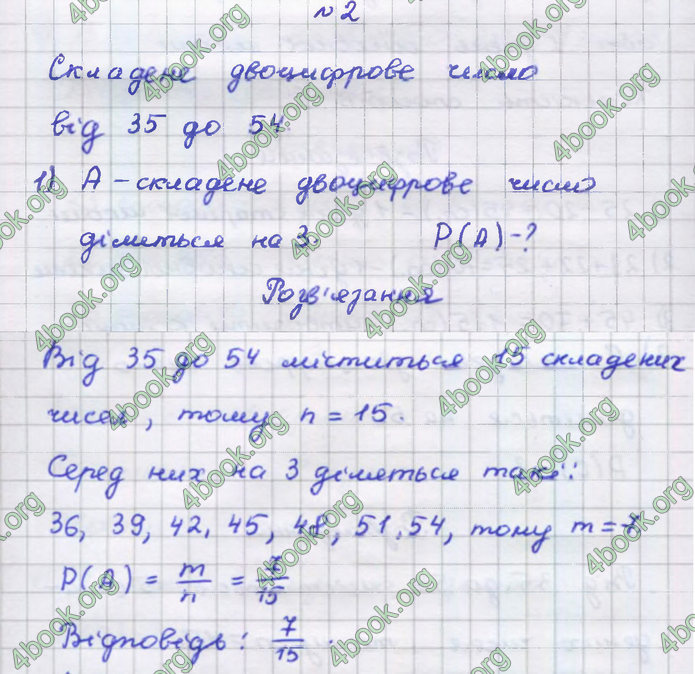 №2
Складене двоцифрове число
від 35 до 54.
1) А – складене двоцифрове число
ділиться на 3. Р(А) - ?
Розв'язання
Від 35 до 54 міститься 15 складених
чисел, тому n = 15.
Серед них на 3 діляться такі:
36, 39, 42, 45, 48, 51, 54, тому m = 7
Р(А) = m/n = 7/15
Відповідь: 7/15.
4book.org